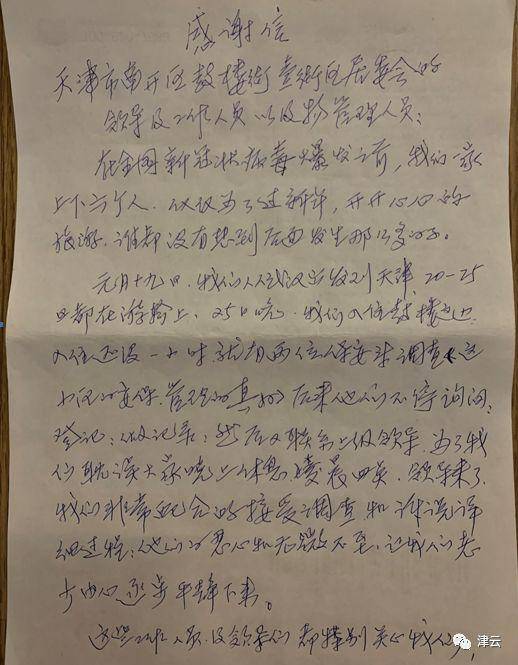 感谢信
天津市南开区鼓楼街壹街区居委会的
领导及工作人员以及物管理人员：
在全国新冠状病毒爆发之前，我们一家
上下六个人，仅仅为了过新年，开开心心的
旅游。谁都没有想到后面发生那么多的事。
元月十九日，我们从武汉出发到天津，20—25
日都在游轮上，25日晚，我们入住鼓楼边，
入住还没一小时，就有两位保安来调查，这
小区的安保、管理的真好，后来他们不停询问、
登记、做记录，然后又联系上级领导，为了我
们耽误大家晚上休息，凌晨四点，领导来了，
我们非常配合的接受调查和诉说详
细过程，他们的关心和无微不至，让我们老
少内心逐步平静下来。
这些工作人员及领导们都特别关心我们，
津云